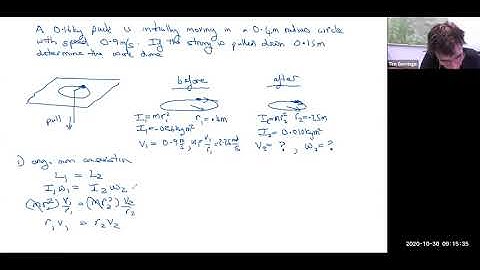 A 0.16kg puck is initially moving in a 0.4m radius circle
with speed 0.9m/s. If the string is pulled down 0.15m
determine the work done
before
after
pull
I₁ = mr₁² r₁ = .4m
I₁ = .026kgm²
V₁ = 0.9 m/s
I₂ = mr₂² r₂ = .25m
I₂ = 0.010kgm²
V₂ = ? , ω₂ = ?
1) ang. mom conservation
L₁ = L₂
I₁ω₁ = I₂ω₂
(mr₁²) v₁/r₁ = (mr₂²) v₂/r₂
r₁v₁ = r₂v₂
2020-10-30 09:15:35